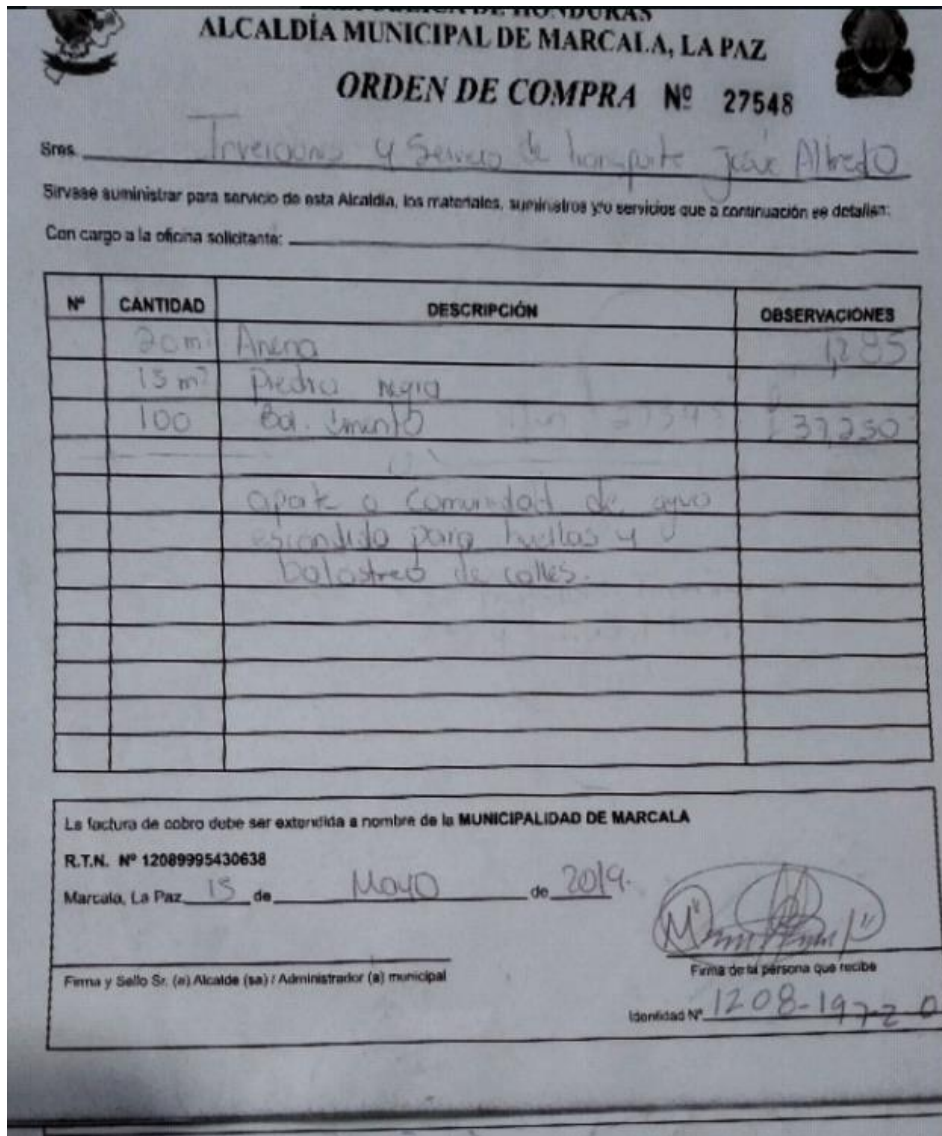 REPÚBLICA DE HONDURAS
ALCALDÍA MUNICIPAL DE MARCALA, LA PAZ
ORDEN DE COMPRA Nº 27548
Sres. Inversiones y Servicio de transporte José Alfredo
Sirvase suministrar para servicio de esta Alcaldía, los materiales, suministros y/o servicios que a continuación se detallan:
Con cargo a la oficina solicitante:
Nº CANTIDAD DESCRIPCIÓN OBSERVACIONES
20 m Arena 1,285
15 m³ Piedra negra
100 Bol. Cemento 37,250
aporte a Comunidad de agua
escondida para huellas y
balastreo de calles.
La factura de cobro debe ser extendida a nombre de la MUNICIPALIDAD DE MARCALA
R.T.N. Nº 12089995430638
Marcala, La Paz 15 de Mayo de 2019.
Firma y Sello Sr. (a) Alcalde (sa) / Administrador (a) municipal
Firma de la persona que recibe
Identidad Nº 1208-1972-0